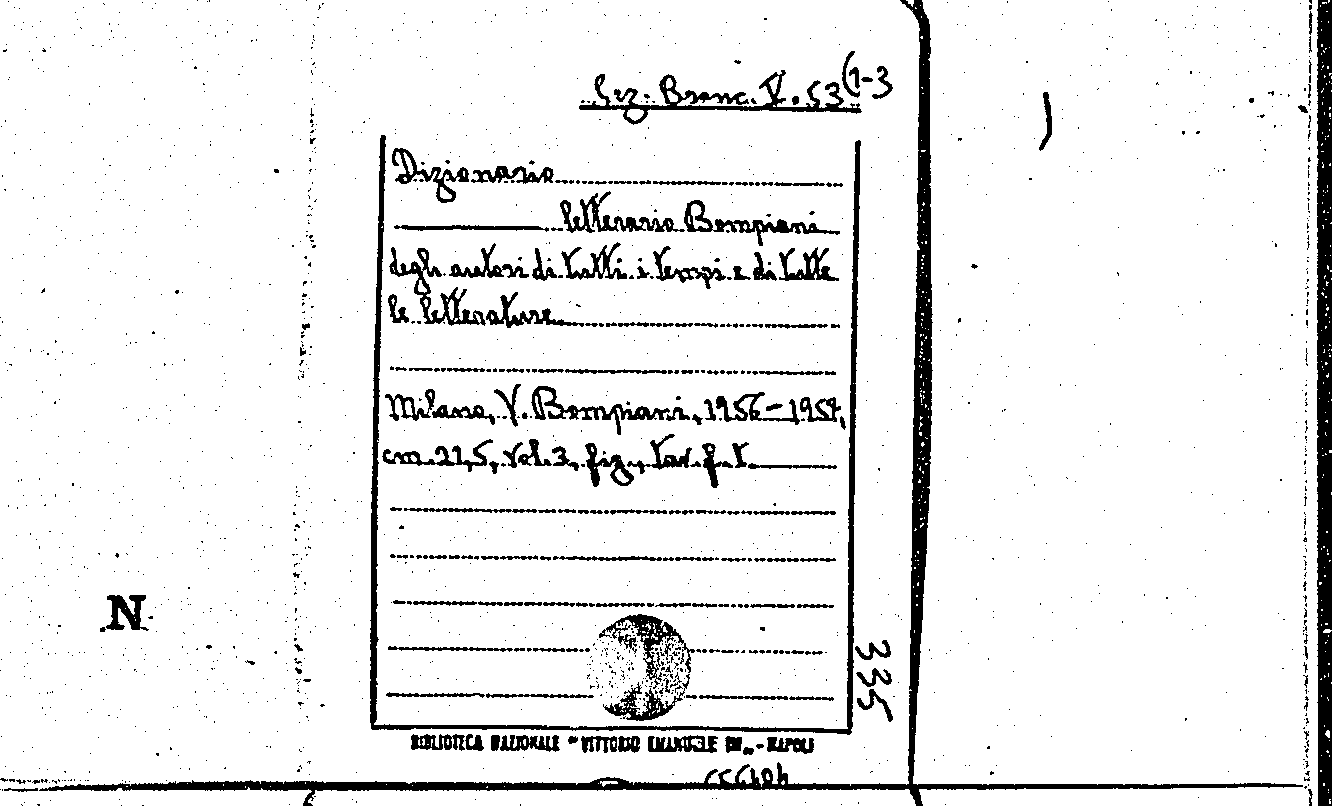 Sez. Branc. V. 53(1-3
Dizionario
letterario Bompiani
degli autori di tutti i tempi e di tutte
le letterature
Milano, V. Bompiani, 1956-1957,
cm. 21,5, vol. 3, fig., tav. f. t.
N
335
BIBLIOTECA NAZIONALE "VITTORIO EMANUELE III" - NAPOLI